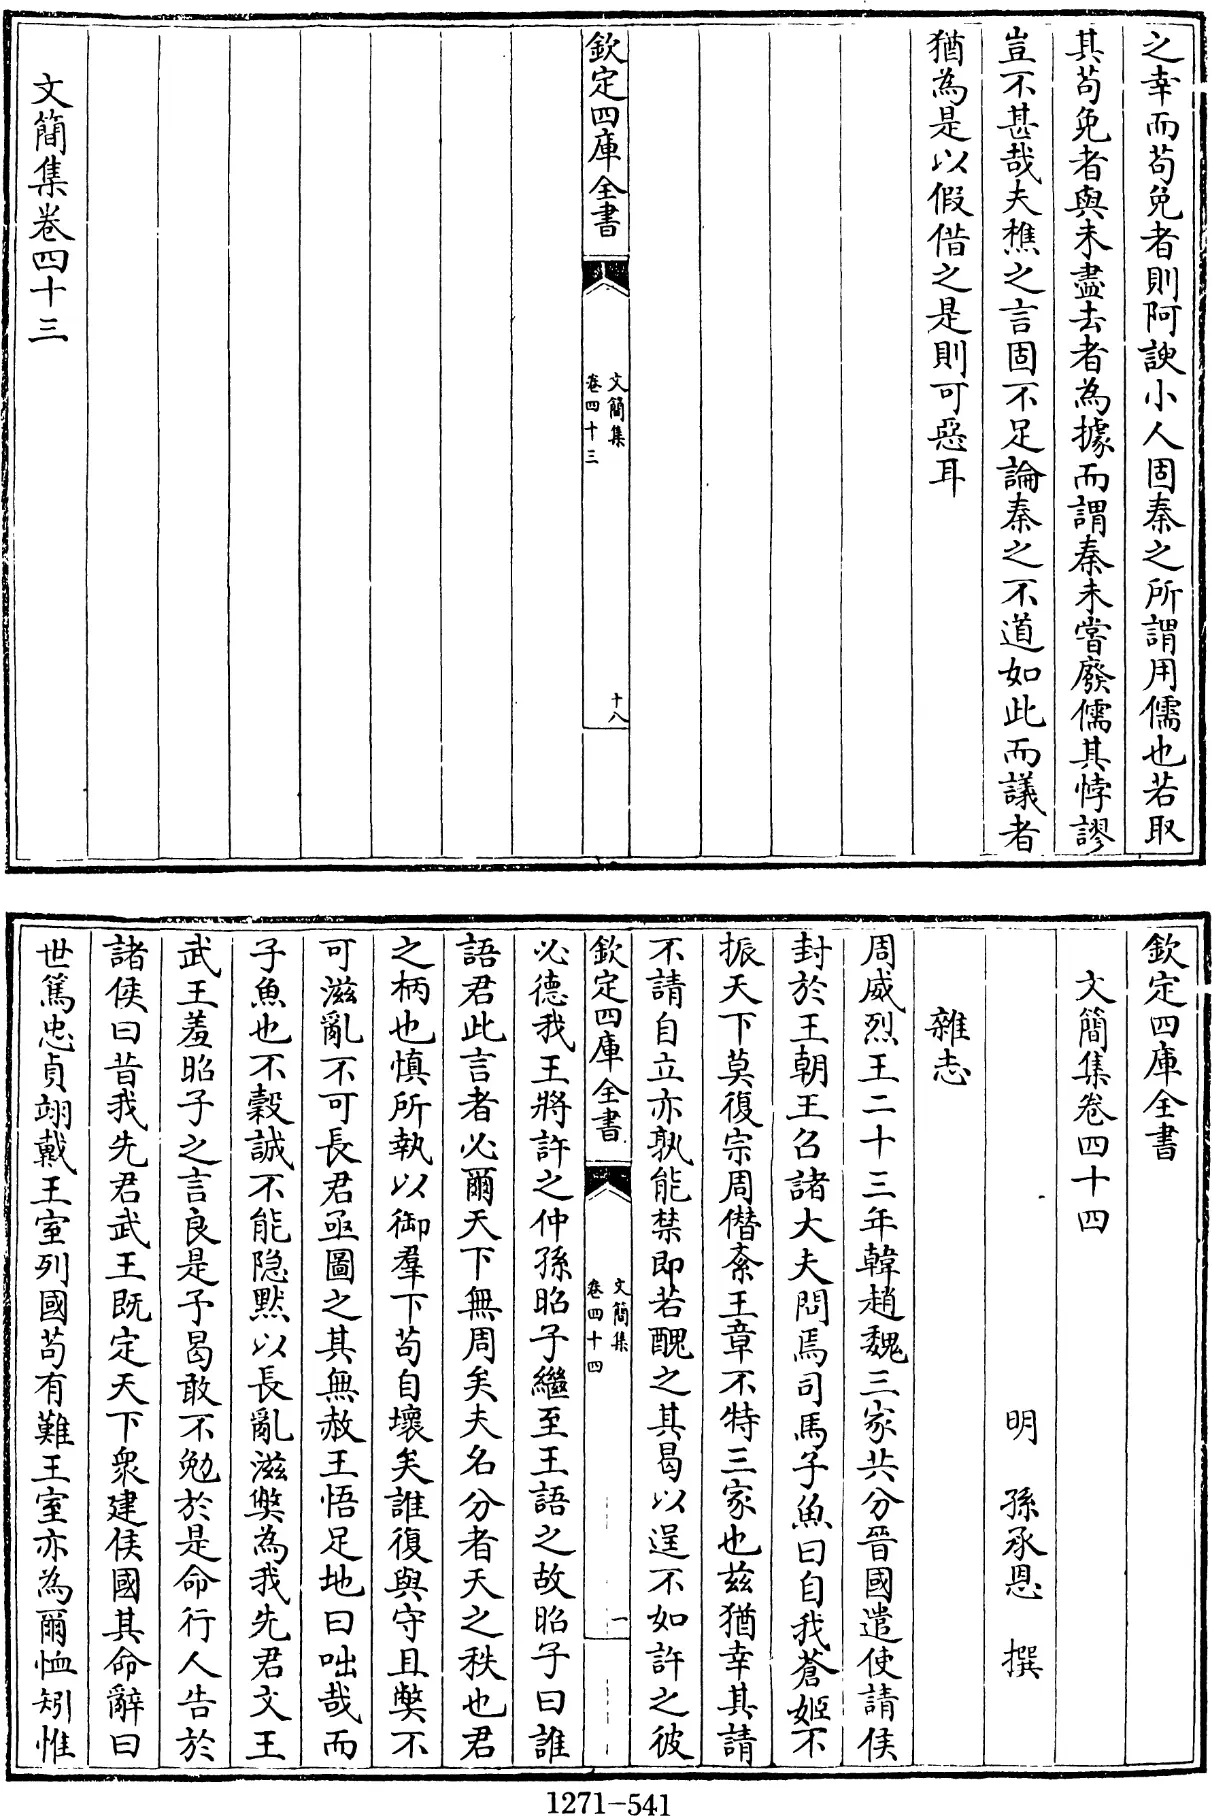 之幸而苟免者則阿諛小人固秦之所謂用儒也若取
其苟免者與未盡去者為據而謂秦未嘗廢儒其悖謬
豈不甚哉夫樵之言固不足論秦之不道如此而議者
猶為是以假借之是則可惡耳
欽定四庫全書
文簡集
卷四十三
十八
文簡集卷四十三
欽定四庫全書
文簡集卷四十四
明 孫承恩 撰
雜志
周威烈王二十三年韓趙魏三家共分晉國遣使請侯
封於王朝王召諸大夫問焉司馬子魚曰自我蒼姬不
振天下莫復宗周僭紊王章不特三家也兹猶幸其請
不請自立亦孰能禁即若醜之其曷以逞不如許之彼
欽定四庫全書
文簡集
卷四十四
一
必德我王將許之仲孫昭子繼至王語之故昭子曰誰
語君此言者必爾天下無周矣夫名分者天之秩也君
之柄也慎所執以御羣下苟自壞矣誰復與守且獘不
可滋亂不可長君亟圖之其無赦王悟足地曰咄哉而
子魚也不穀誠不能隐黙以長亂滋獘為我先君文王
武王羞昭子之言良是予曷敢不勉於是命行人告於
諸侯曰昔我先君武王既定天下衆建侯國其命辭曰
世篤忠貞翊戴王室列國苟有難王室亦為爾恤矧惟
1271-541